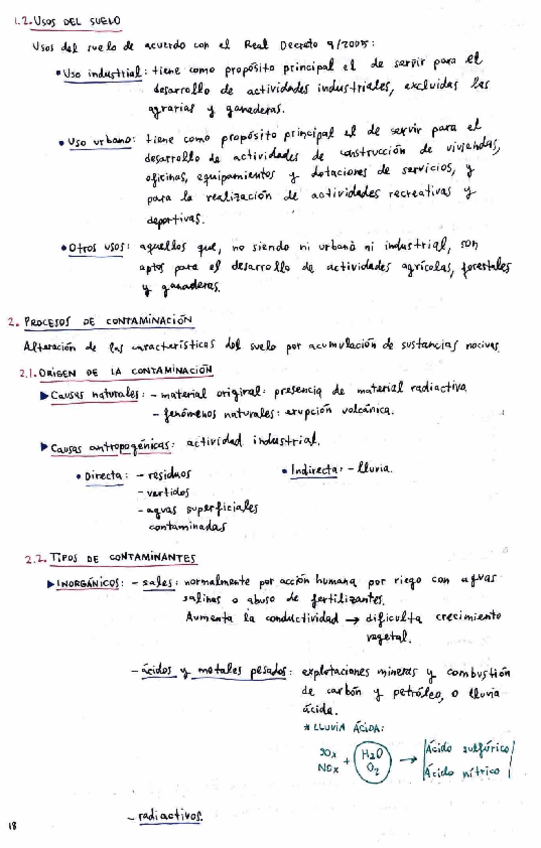 1.2. USOS DEL SUELO
Usos del suelo de acuerdo con el Real Decreto 9/2005:
• Uso industrial: tiene como propósito principal el de servir para el
desarrollo de actividades industriales, excluidas las
agrarias y ganaderas.
• Uso urbano: tiene como propósito principal el de servir para el
desarrollo de actividades de construcción de viviendas,
oficinas, equipamientos y dotaciones de servicios, y
para la realización de actividades recreativas y
deportivas.
• Otros usos: aquellos que, no siendo ni urbano ni industrial, son
aptos para el desarrollo de actividades agrícolas, forestales
y ganaderas.
2. PROCESOS DE CONTAMINACIÓN
Alteración de las características del suelo por acumulación de sustancias nocivas.
2.1. ORIGEN DE LA CONTAMINACIÓN
▶ Causas naturales: - material original: presencia de material radiactivo
- fenómenos naturales: erupción volcánica.
▶ Causas antropogénicas: actividad industrial.
• Directa: - residuos • Indirecta: - lluvia.
- vertidos
- aguas superficiales
contaminadas
2.2. TIPOS DE CONTAMINANTES
▶ INORGÁNICOS: - sales: normalmente por acción humana por riego con aguas
salinas o abuso de fertilizantes.
Aumenta la conductividad → dificulta crecimiento
vegetal.
- ácidos y metales pesados: explotaciones mineras y combustión
de carbón y petróleo, o lluvia
ácida.
* LLUVIA ÁCIDA:
SOx + H2O → Ácido sulfúrico
NOx O2 Ácido nítrico
- radiactivos.
18